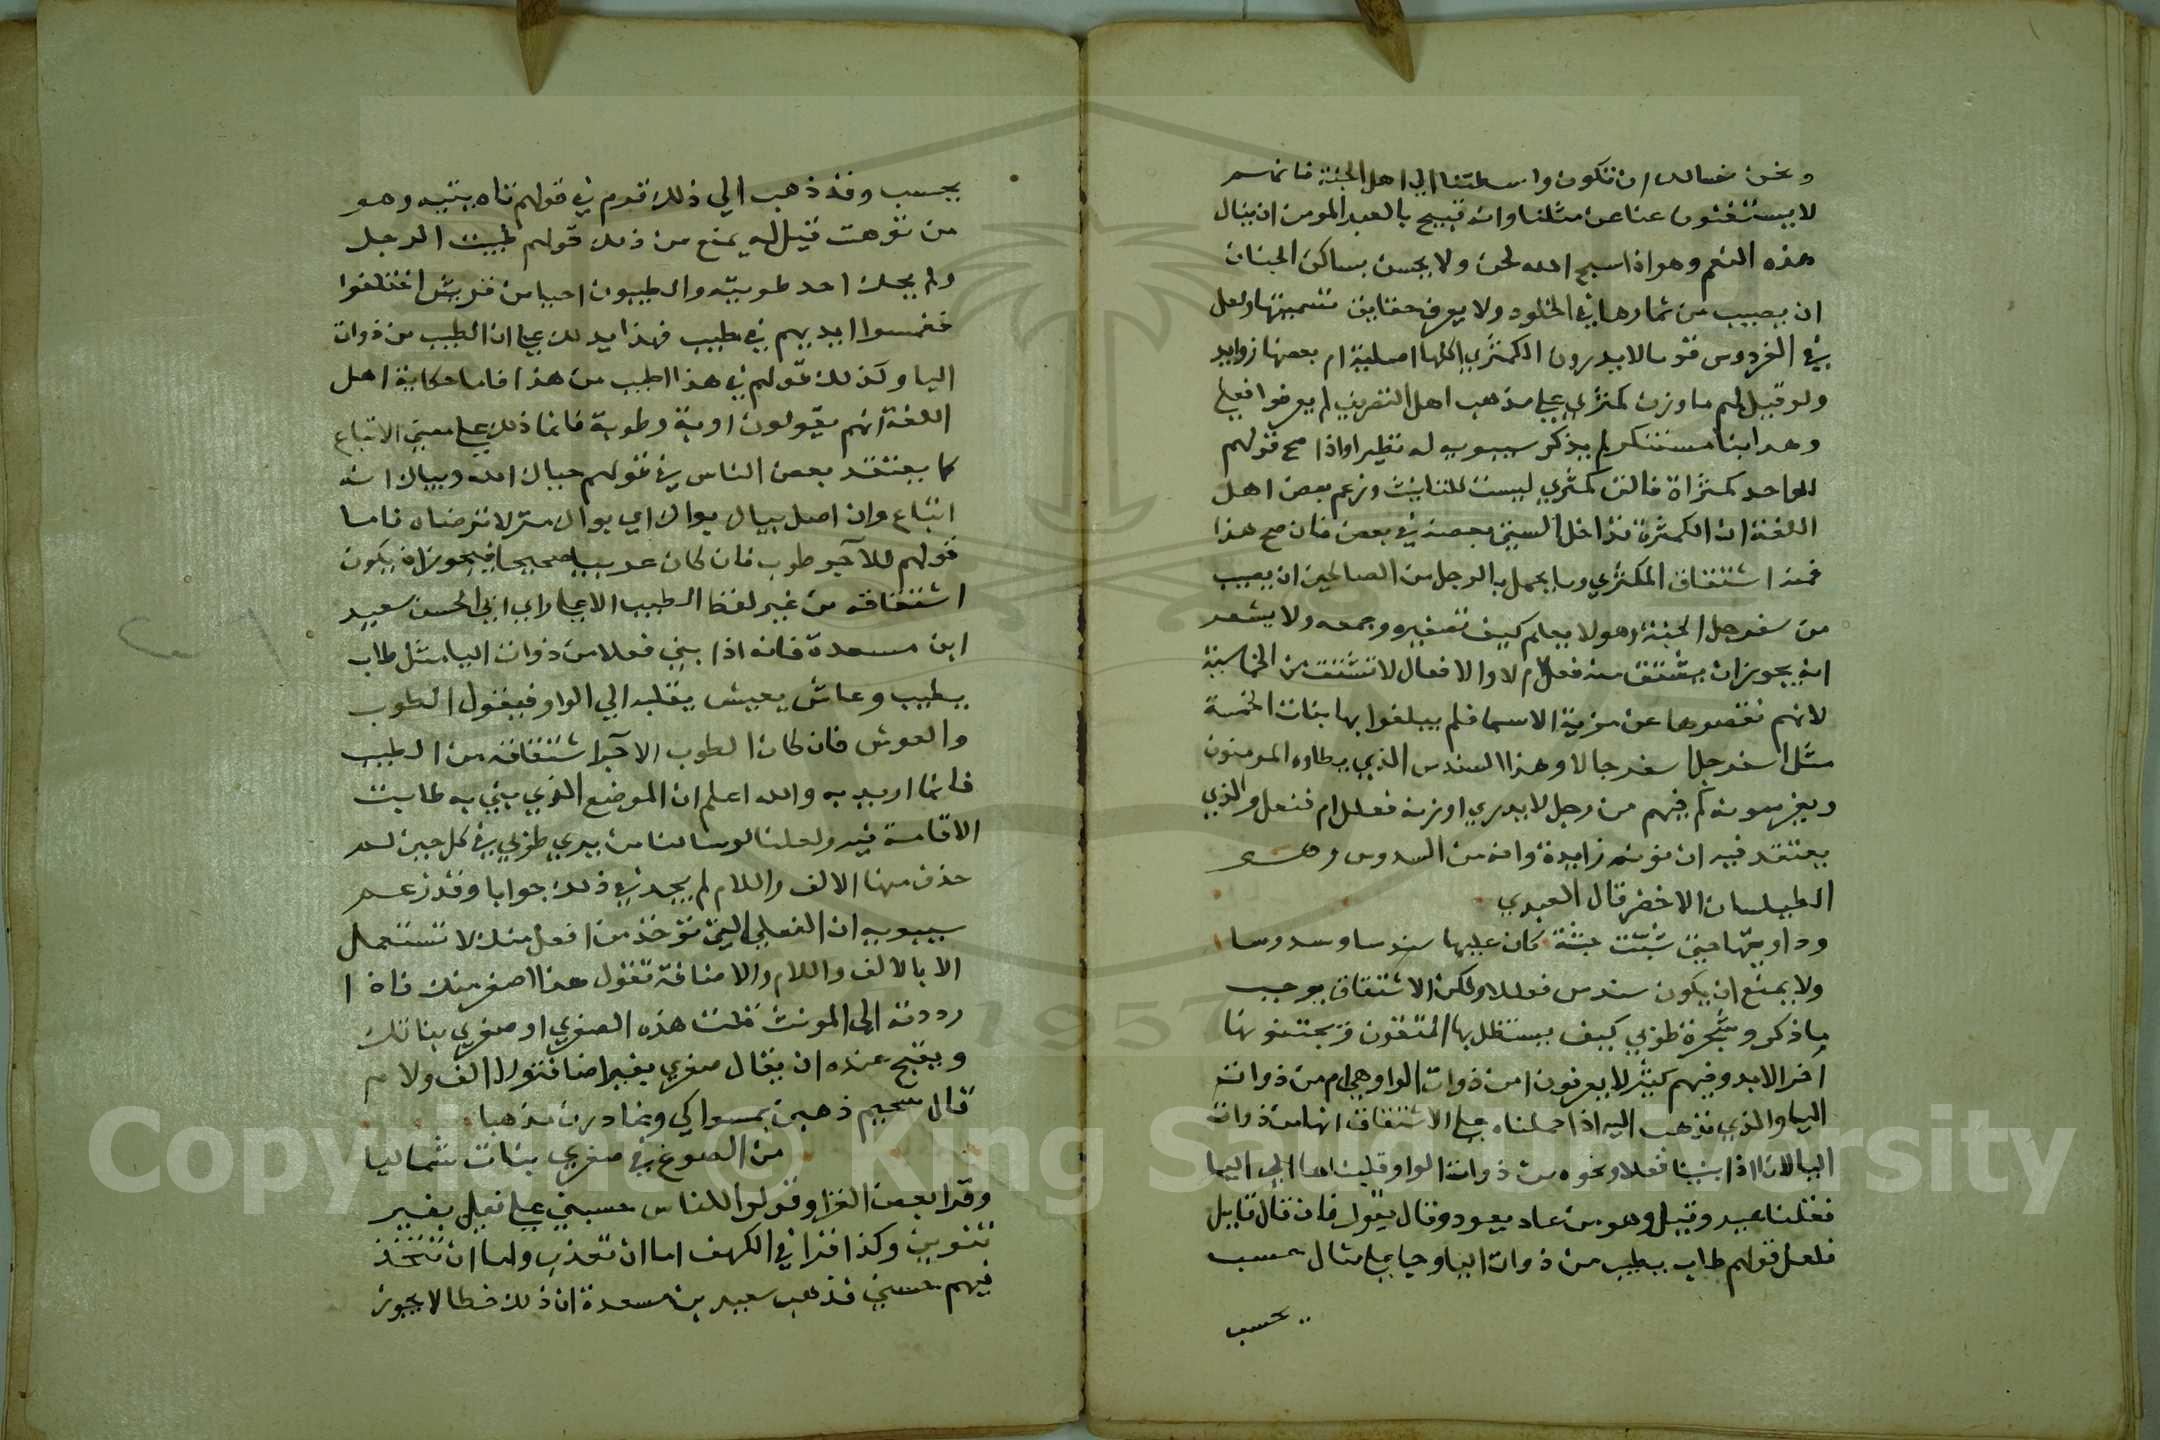 ونحن نسالك ان تكون واسطتنا الي اهل الجنة فانهم
لا يستغنون عنا عن مثلنا وانه قبيح بالعبد المومن ان ينال
هذه النعم وهو اذا سبح الله لحن ولا يحسن بساكن الجنان
ان يصيب من ثمارها في الخلود ولا يعرف حقايق تسميتها ولعل
في الفردوس قوما لا يدرون الكمثري كلها اصلية ام بعضها زوايد
ولو قيل لهم ما وزن كمثري علي مذهب اهل التصريف لم يعرفوا فعلي
وهذا بنا مستنكر لم يذكر سيبويه له نظيرا واذا صح قولهم
للواحد كمثراة فالف كمثري ليست للتانيث وزعم بعض اهل
اللغة ان الكمثرة تداخل الشي بعضه في بعض فان صح هذا
فمنه اشتقاق الكمثري وما يجمل بالرجل من الصالحين ان يصيب
من سفرجل الجنة وهو لا يعلم كيف تصغيره وجمعه ولا يشعر
اين يجوز ان يشتق منه فعل ام لا والافعال لا تشتق من الخماسية
لانهم نقصوها عن مزية الاسما فلم يبلغوا بها بنات الخمسة
مثل اسفرجل اسفرجالا وهذا السندس الذي يطاوه المومنون
ويفرشونه كم فيهم من رجل لا يدري اوزنه فعلل ام فنعل والذي
يعتقد فيه ان نونه زايدة وانه من السدوس وهو
الطيلسان الاخضر قال العبدي
وداويتها حتي شتت حبشية كان عليها سندسا وسدوسا
ولا يمتنع ان يكون سندس فعللا ولكن الاشتقاق يوجب
ما ذكر وشجرة طوبي كيف يستظل بها المتقون ويجتنونها
اخر الابد وفيهم كثير لا يعرفون امن ذوات الواو هي ام من ذوات
اليا والذي نذهب اليه اذا حملناه علي الاشتقاق انها من ذوات
اليا لانا اذا بنينا فعلا ونحوه من ذوات الواو قلبناها الي اليا
فقلنا عيد وقيل وهو من عاد يعود وقال يقول فان قال قايل
فلعل قولهم طاب يطيب من ذوات اليا وجا علي مثال حسب
يحسب
يحسب وقد ذهب الي ذلك قوم في قولهم تاه يتيه وهو
من توهت قيل له يمنع من ذلك قولهم طيبت الرجل
ولم يحك احد طوبته والمطيبون احيا من قريش احتلفوا
فغمسوا ايديهم في طيب فهذا يدلك علي ان الطيب من ذوات
اليا وكذلك قولهم في هذا اطيب من هذا فاما حكاية اهل
اللغة انهم يقولون اوبة وطوبة فانما ذلك علي معني الاتباع
كما يعتقد بعض الناس في قولهم حياك الله وبياك انه
اتباع وان اصل بياك بواك اي بواك منزلا ترضاه فاما
قولهم للآجر طوب فان كان عربيا صحيحا فيجوز ان يكون
اشتقاقه من غير لفظ الطيب الا علي راي ابي الحسن سعيد
ابن مسعدة فانه اذا بني فعلا من ذوات اليا مثل طاب
يطيب وعاش يعيش يقلبه الي الواو فيقول الطوب
والعوش فان كان الطوب الآجر اشتقاقه من الطيب
فانما اريد به والله اعلم ان الموضع الذي يبني به طابت
الاقامة فيه ولعلنا لو سالنا من يري طوبي في كل حين لم
حذف منها الالف واللام لم يجد في ذلك جوابا وقد زعم
سيبويه ان الفعلي التي توخذ من افعل منك لا تستعمل
الا بالالف واللام والاضافة تقول هذا اصغر منك فاذا
رددته الى المونث قلت هذه الصغري او صغري بناتك
ويقبح عنده ان يقال صغري بغير اضافة ولا الف ولا م
قال سحيم ذهبن بمسواكي وغادرن مذهبا
من الصوغ في صغري بنات شماليا
وقرا بعض القرا وقولوا للناس حسني علي فعلي بغير
تنوين وكذا قرا في الكهف اما ان تعذب واما ان تتخذ
فيهم حسني فذهب سعيد بن مسعدة ان ذلك خطا لا يجوز